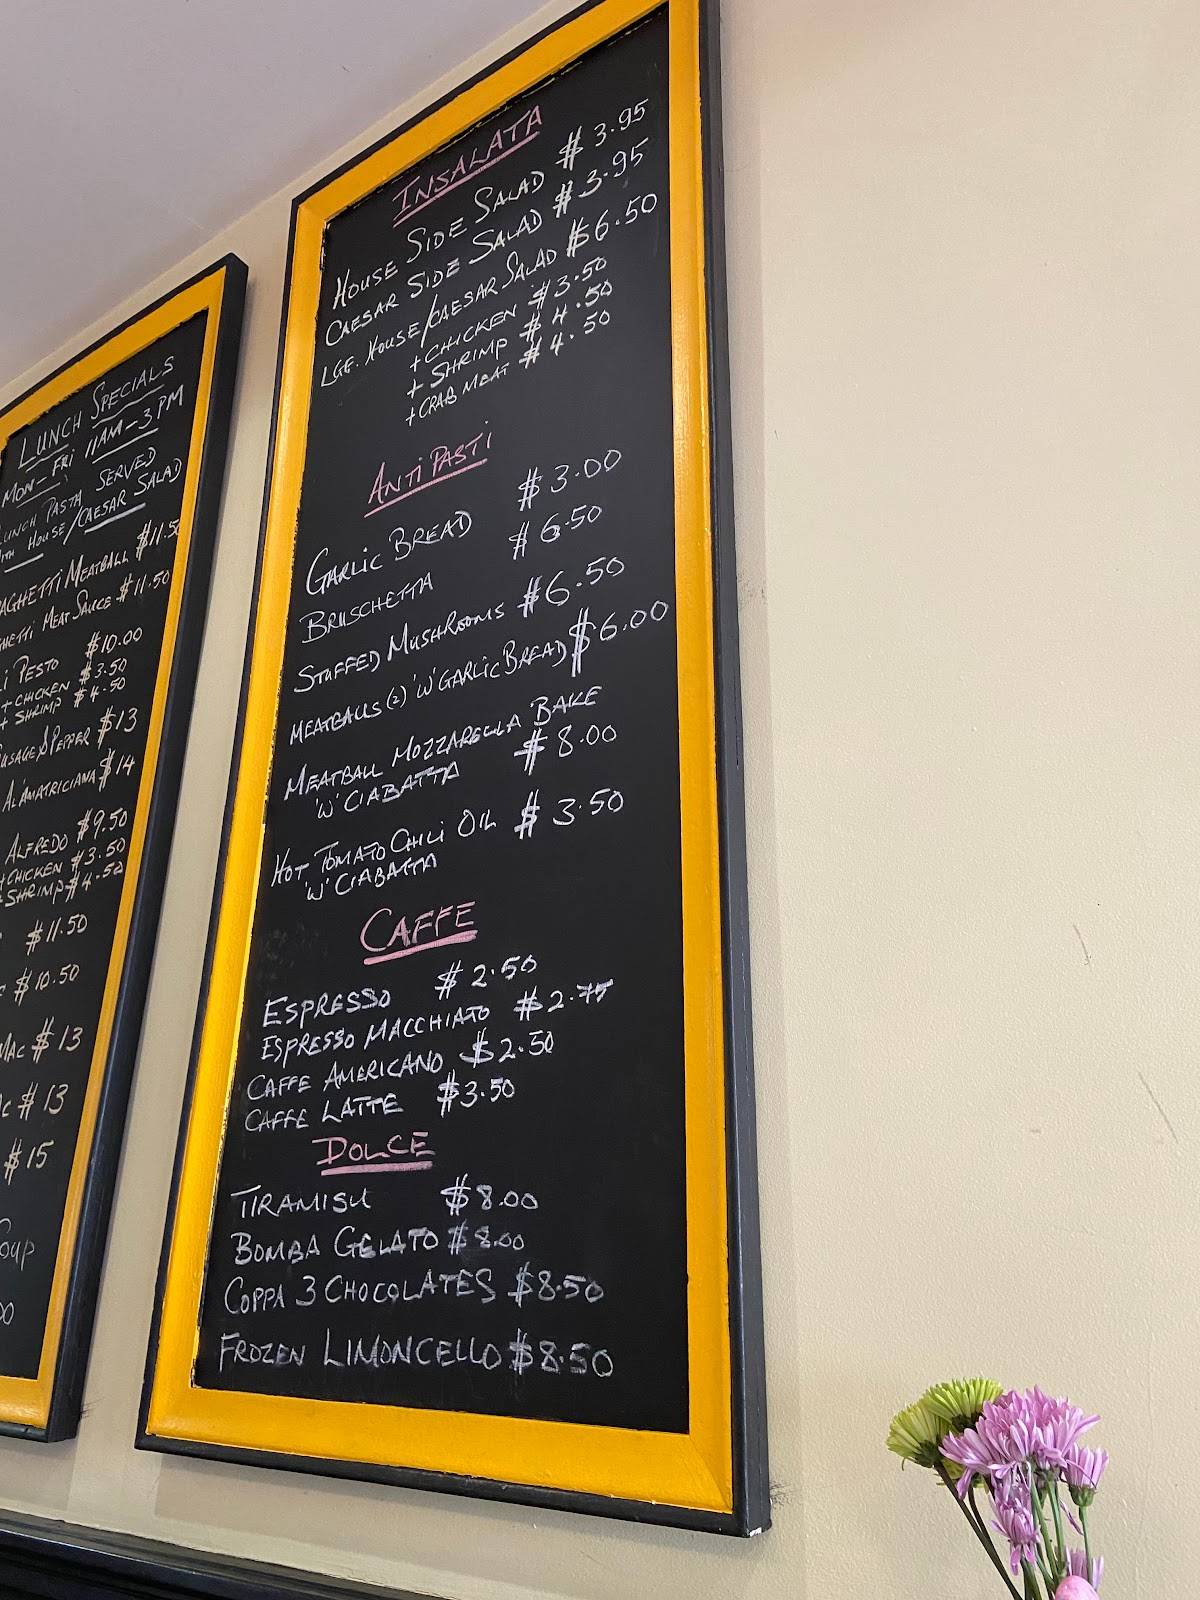 LUNCH SPECIALS
MON-FRI 11AM-3PM
LUNCH PASTA SERVED
WITH HOUSE/CAESAR SALAD
MEATBALL $11.50
MEAT SAUCE $11.50
PESTO $10.00
+ CHICKEN $3.50
+ SHRIMP $4.50
PEPPER $13
AL'AMATRICIANA $14
ALFREDO $9.50
+ CHICKEN $3.50
+ SHRIMP $4.50
$11.50
$10.50
MAC $13
$13
$15
INSALATA
HOUSE SIDE SALAD $3.95
CAESAR SIDE SALAD $3.95
LGE. HOUSE/CAESAR SALAD $6.50
+ CHICKEN $3.50
+ SHRIMP $4.50
+ CRAB MEAT $4.50
ANTIPASTI
GARLIC BREAD $3.00
BRUSCHETTA $6.50
STUFFED MUSHROOMS $6.50
MEATBALLS (2) 'W' GARLIC BREAD $6.00
MEATBALL MOZZARELLA BAKE
'W' CIABATTA $8.00
HOT TOMATO CHILI OIL $3.50
'W' CIABATTA
CAFFE
ESPRESSO $2.50
ESPRESSO MACCHIATO $2.75
CAFFE AMERICANO $2.50
CAFFE LATTE $3.50
DOLCE
TIRAMISU $8.00
BOMBA GELATO $8.00
COPPA 3 CHOCOLATES $8.50
FROZEN LIMONCELLO $8.50